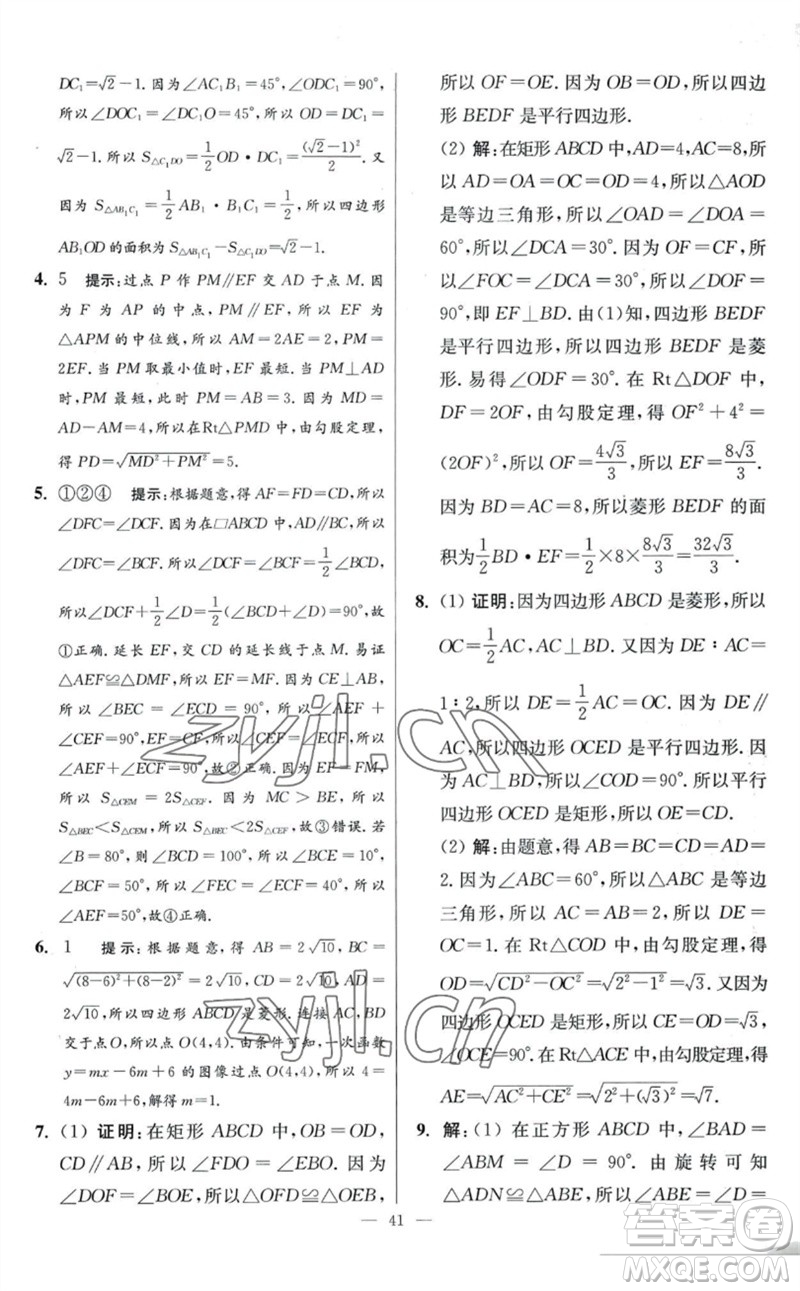 DC₁=√2-1. 因为∠AC₁B₁=45°,∠ODC₁=90°,
所以∠DOC₁=∠DC₁O=45°,所以 OD=DC₁=
√2-1. 所以 S△C₁DO=1/2 OD·DC₁=(√2-1)²/2. 又
因为 S△AB₁C₁=1/2 AB₁·B₁C₁=1/2,所以四边形
AB₁OD 的面积为 S△AB₁C₁-S△C₁DO=√2-1.
4. 5 提示:过点 P 作 PM∥EF 交 AD 于点 M. 因
为 F 为 AP 的中点,PM∥EF,所以 EF 为
△APM 的中位线,所以 AM=2AE=2,PM=
2EF. 当 PM 取最小值时,EF 最短. 当 PM⊥AD
时,PM 最短,此时 PM=AB=3. 因为 MD=
AD-AM=4,所以在Rt△PMD 中,由勾股定理,
得 PD=√(MD²+PM²)=5.
5. ①②④ 提示:根据题意,得 AF=FD=CD,所以
∠DFC=∠DCF. 因为在□ABCD 中,AD∥BC,所以
∠DFC=∠BCF. 所以∠DCF=∠BCF=1/2∠BCD.
所以∠DCF+1/2∠D=1/2(∠BCD+∠D)=90°,故
①正确. 延长 EF,交 CD 的延长线于点 M. 易证
△AEF≌△DMF,所以 EF=MF. 因为 CE⊥AB,所
以∠BEC=∠ECD=90°,所以 CF=1/2 EM=EF. 所
以∠FEC=∠ECF,所以∠AEF+
∠CEF=90°,EF=CF,所以∠ECF=∠CEF,所以
∠AEF+∠ECF=90°,故②正确. 因为 EF=MF,所
以 S△CEM=2S△CEF. 因为 MC>BE,所以
S△BEC<S△CEM,所以 S△BEC<2S△CEF,故③错误. 若
∠B=80°,则∠BCD=100°,所以∠BCE=10°,
∠BCF=50°,所以∠FEC=∠ECF=40°,所以
∠AEF=50°,故④正确.
6. 1 提示:根据题意,得 AB=2√10,BC=
√((8-6)²+(8-2)²)=2√10,CD=2√10,AD=
2√10,所以四边形 ABCD 是菱形. 连接 AC,BD
交于点O,所以O(4,4). 由条件可知,一次函数
y=mx-6m+6 的图像过点 O(4,4),所以 4=
4m-6m+6,解得 m=1.
7. (1) 证明:在矩形 ABCD 中,OB=OD,
CD∥AB,所以∠FDO=∠EBO. 因为
∠DOF=∠BOE,所以△OFD≌△OEB,
所以 OF=OE. 因为 OB=OD,所以四边
形 BEDF 是平行四边形.
(2) 解:在矩形 ABCD 中,AD=4,AC=8,所
以 AD=OA=OC=OD=4,所以△AOD
是等边三角形,所以∠OAD=∠DOA=
60°,所以∠DCA=30°. 因为 OF=CF,所
以∠FOC=∠DCA=30°,所以∠DOF=
90°,即 EF⊥BD. 由(1)知,四边形 BEDF
是平行四边形,所以四边形 BEDF 是菱
形. 易得∠ODF=30°. 在 Rt△DOF 中,
DF=2OF,由勾股定理,得 OF²+4²=
(2OF)²,所以 OF=4√3/3,所以 EF=8√3/3.
因为 BD=AC=8,所以菱形 BEDF 的面
积为1/2 BD·EF=1/2×8×8√3/3=32√3/3.
8. (1) 证明:因为四边形 ABCD 是菱形,所以
OC=1/2 AC,AC⊥BD. 又因为 DE∶AC=
1∶2,所以 DE=1/2 AC=OC. 因为 DE∥
AC,所以四边形 OCED 是平行四边形. 因
为 AC⊥BD,所以∠COD=90°. 所以平行
四边形 OCED 是矩形,所以 OE=CD.
(2) 解:由题意,得 AB=BC=CD=AD=
2. 因为∠ABC=60°,所以△ABC 是等边
三角形,所以 AC=AB=2,所以 DE=
OC=1. 在 Rt△COD 中,由勾股定理,得
OD=√(CD²-OC²)=√(2²-1²)=√3. 又因为
四边形 OCED 是矩形,所以 CE=OD=√3,
∠OCE=90°. 在 Rt△ACE 中,由勾股定理,得
AE=√(AC²+CE²)=√(2²+(√3)²)=√7.
9. 解:(1) 在正方形 ABCD 中,∠BAD=
∠ABM=∠D=90°. 由旋转可知
△ADN≌△ABE,所以∠ABE=∠D=
— 41 —
zyjl.cn
zyjl.cn
答案卷
MXQE.COM